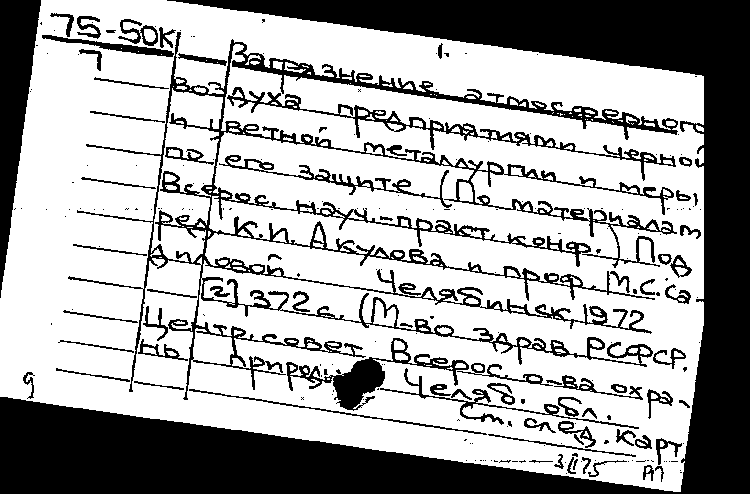 75-50К
1.
7
Загрязнение атмосферного
воздуха предприятиями черной
и цветной металлургии и меры
по его защите. (По материалам
Всерос. науч.-практ. конф.) Под
ред. К.И. Акулова и проф. М.С. Са-
диловой. Челябинск, 1972
[2], 372 с. (М-во здрав. РСФСР.
Центр. совет Всерос. о-ва охра-
ны природы Челяб. обл.
См. след. карт
9